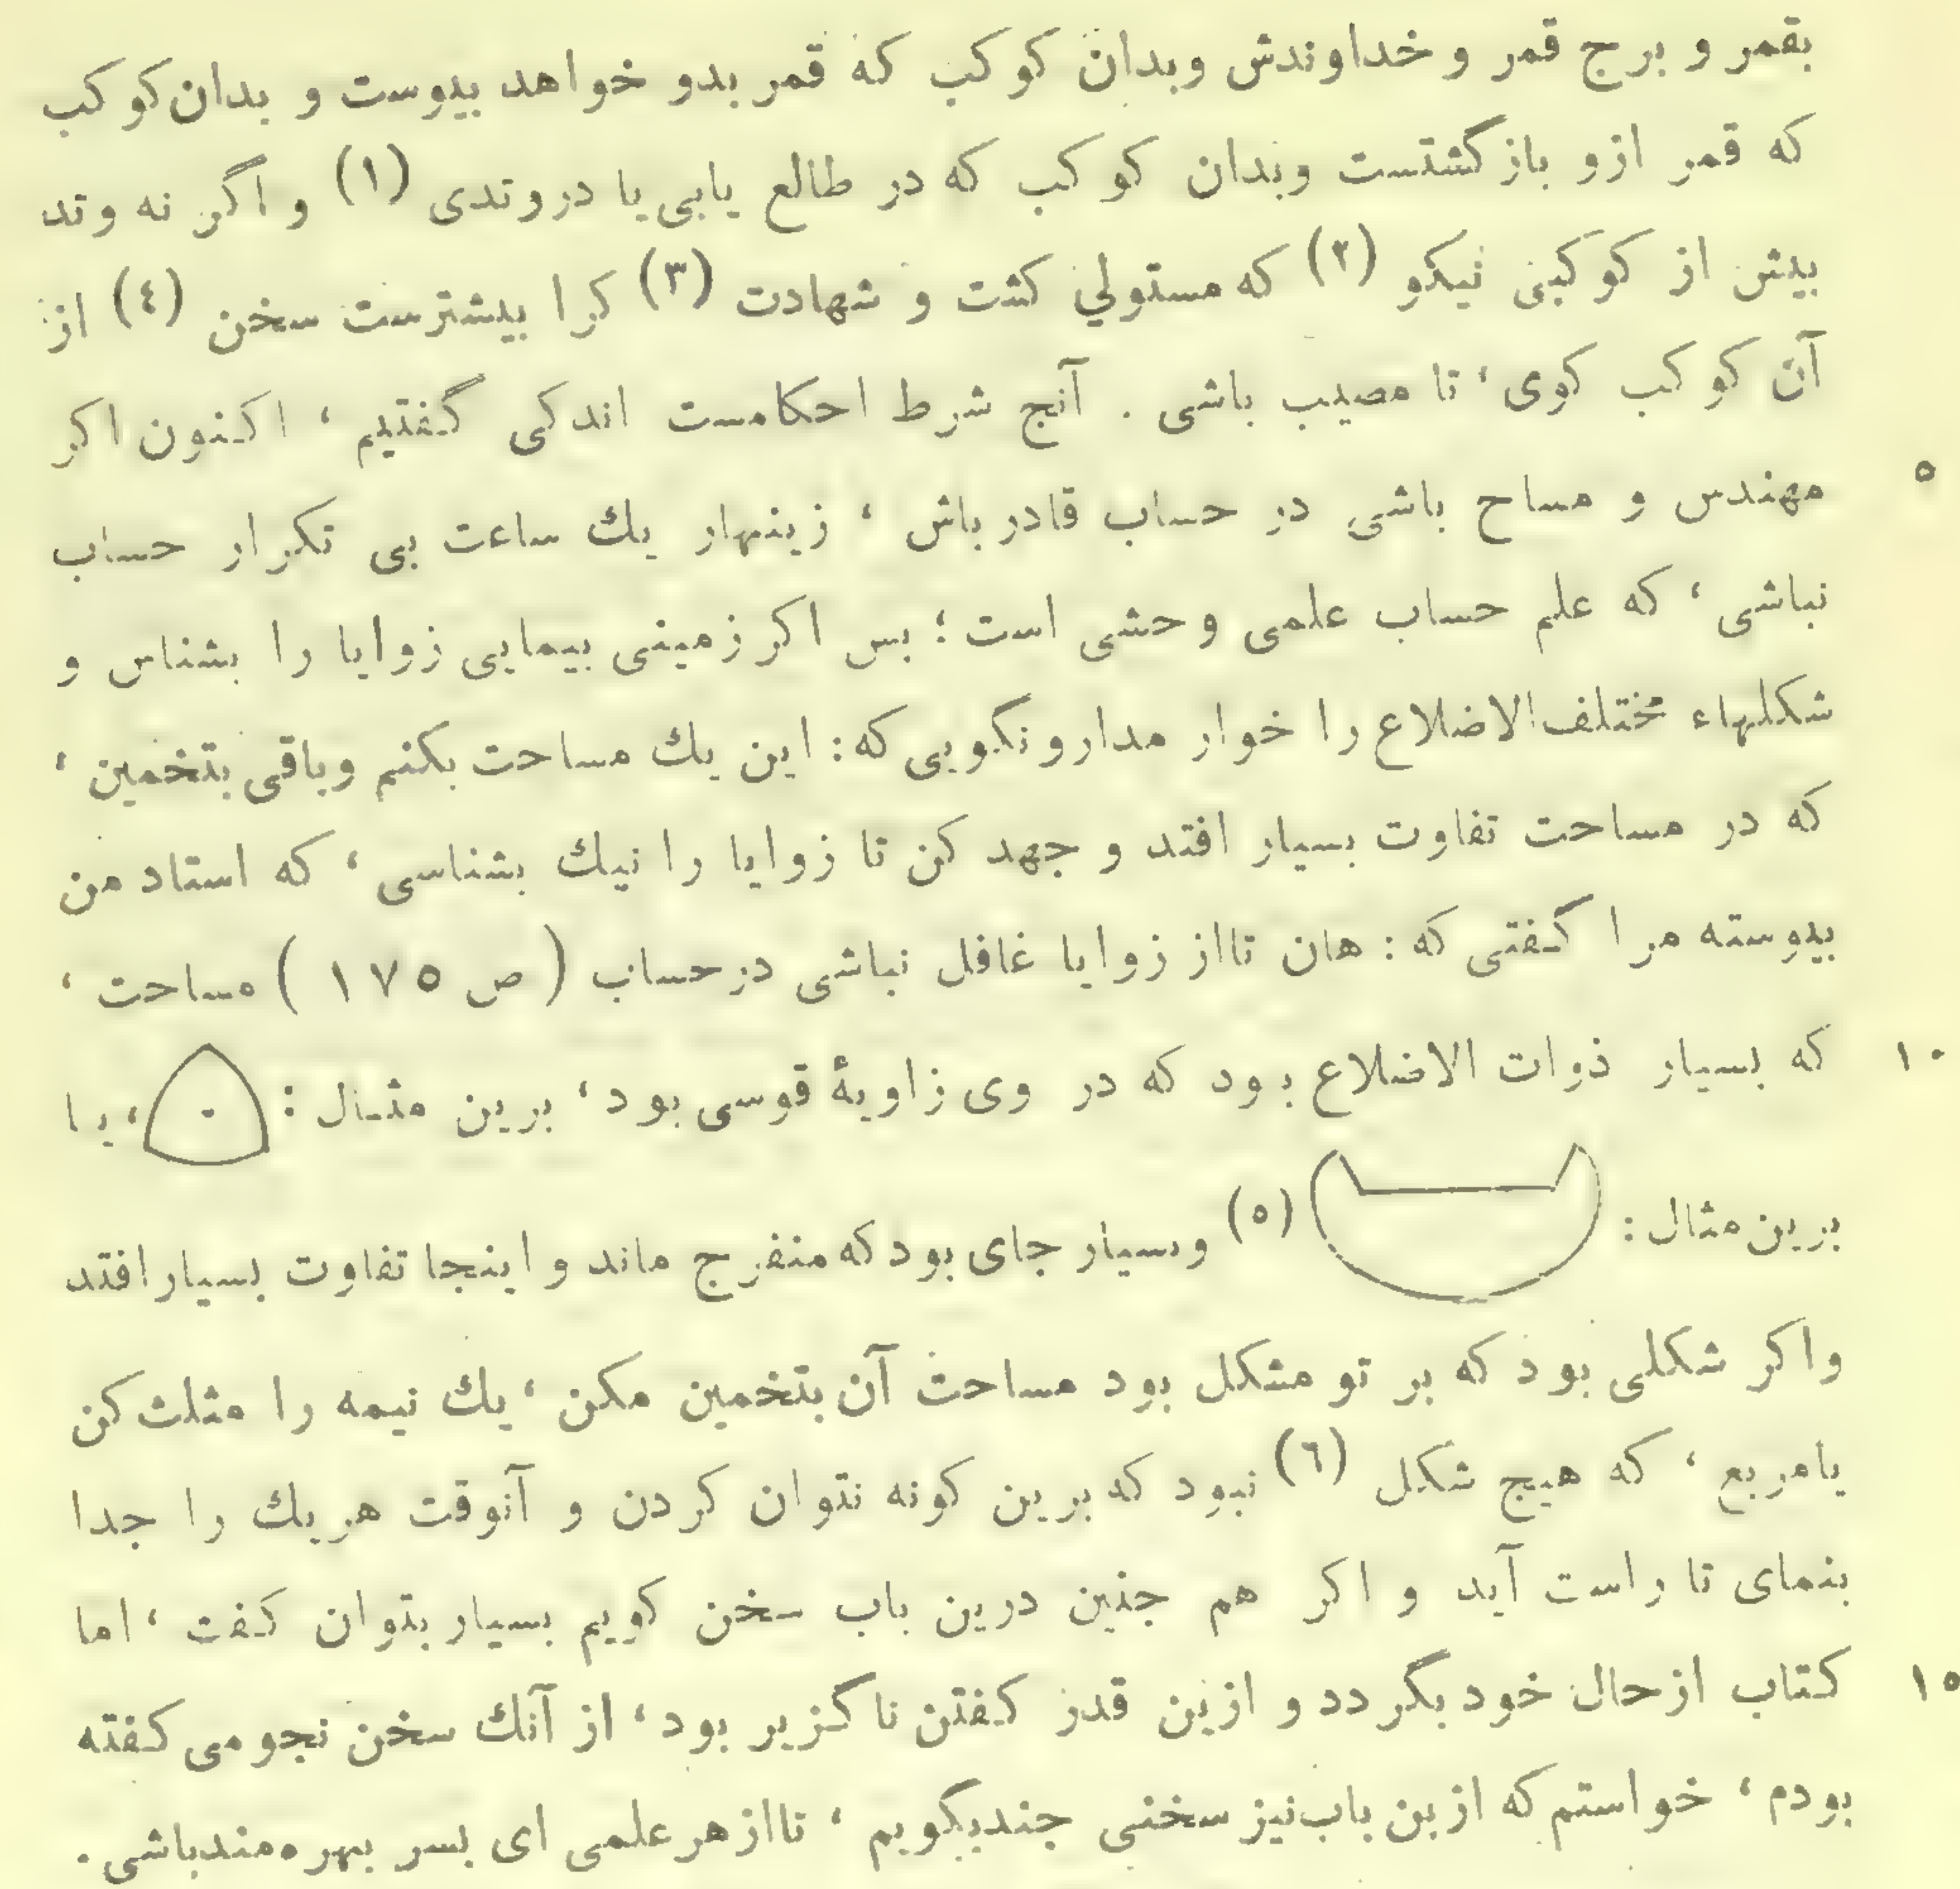 بقمر و برج قمر و خداوندش وبدان کوکب که قمر بدو خواهد بیوست و بدان کوکب
که قمر ازو باز گشتست وبدان کوکب که در طالع یابی یا در وتدی (۱) و اگر نه وتد
بیش از کوکبی نیکو (۲) که مستولي کشت و شهادت (۳) کرا بیشترست سخن (٤) از
آن کوکب کوی، تا مصیب باشی . آنج شرط احکامست اندکی گفتیم، اکنون اکر
۵ مهندس و مساح باشی در حساب قادر باش، زینهار یك ساعت بی تکرار حساب
نباشی، که علم حساب علمی وحشی است؛ بس اکر زمینی بیمایی زوایا را بشناس و
شکلهاء مختلف الاضلاع را خوار مدار و نگویی که: این یك مساحت بکنم وباقی بتخمین،
که در مساحت تفاوت بسیار افتد و جهد کن تا زوایا را نیك بشناسی، که استاد من
بیوسته مرا کفتی که: هان تا از زوایا غافل نباشی در حساب (ص ۱۷۵) مساحت،
۱۰ که بسیار ذوات الاضلاع بود که در وی زاویهٔ قوسی بود، برین مثال: ، یا
برین مثال: (۵) وبسیار جای بود که منفرج ماند و اینجا تفاوت بسیار افتد
واکر شکلی بوذ که بر تو مشکل بود مساحت آن بتخمین مکن، یك نیمه را مثلث کن
یا مربع، که هیج شکل (٦) نبود که برین کونه نتوان کردن و آنوقت هر یك را جدا
بنمای تا راست آید و اکر هم جنین درین باب سخن کویم بسیار بتوان کفت، اما
۱۵ کتاب از حال خود بگردد و ازین قدر کفتن ناگزیر بود، از آنك سخن نجومی کفته
بودم، خواستم که ازین باب نیز سخنی جند بگویم، تا از هر علمی ای بسر بهره مند باشی.